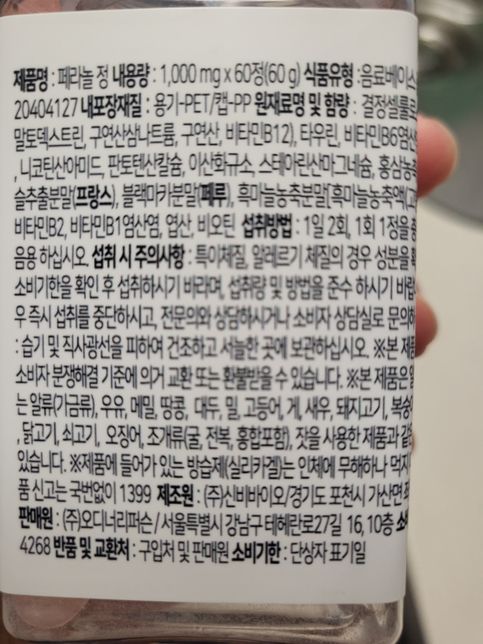 제품명 : 페라놀 정 내용량 : 1,000 mg x 60정(60 g) 식품유형 :음료베이스
20404127 내포장재질 : 용기-PET/캡-PP 원재료명 및 함량 : 결정셀룰로
말토덱스트린, 구연산삼나트륨, 구연산, 비타민B12), 타우린, 비타민B6염산
, 니코틴산아미드, 판토텐산칼슘, 이산화규소, 스테아린산마그네슘, 홍삼농축
슬추출분말(프랑스), 블랙마카분말(페루), 흑마늘농축분말[흑마늘농축액(고
비타민B2, 비타민B1염산염, 엽산, 비오틴 섭취방법 : 1일 2회, 1회 1정을 충
음용 하십시오. 섭취 시 주의사항 : 특이체질, 알레르기 체질의 경우 성분을 확
소비기한을 확인 후 섭취하시기 바라며, 섭취량 및 방법을 준수 하시기 바랍
우 즉시 섭취를 중단하시고, 전문의와 상담하시거나 소비자 상담실로 문의하
: 습기 및 직사광선을 피하여 건조하고 서늘한 곳에 보관하십시오. ※본 제품
소비자 분쟁해결 기준에 의거 교환 또는 환불받을 수 있습니다. ※본 제품은 알
는 알류(가금류), 우유, 메밀, 땅콩, 대두, 밀, 고등어, 게, 새우, 돼지고기, 복숭아
, 닭고기, 쇠고기, 오징어, 조개류(굴, 전복, 홍합포함), 잣을 사용한 제품과 같은
있습니다. ※제품에 들어가 있는 방습제(실리카겔)는 인체에 무해하나 먹지
품 신고는 국번없이 1399 제조원 : (주)신비바이오/경기도 포천시 가산면
판매원 : (주)오디너리퍼슨 / 서울특별시 강남구 테헤란로27길 16, 10층 소
4268 반품 및 교환처 : 구입처 및 판매원 소비기한 : 단상자 표기일